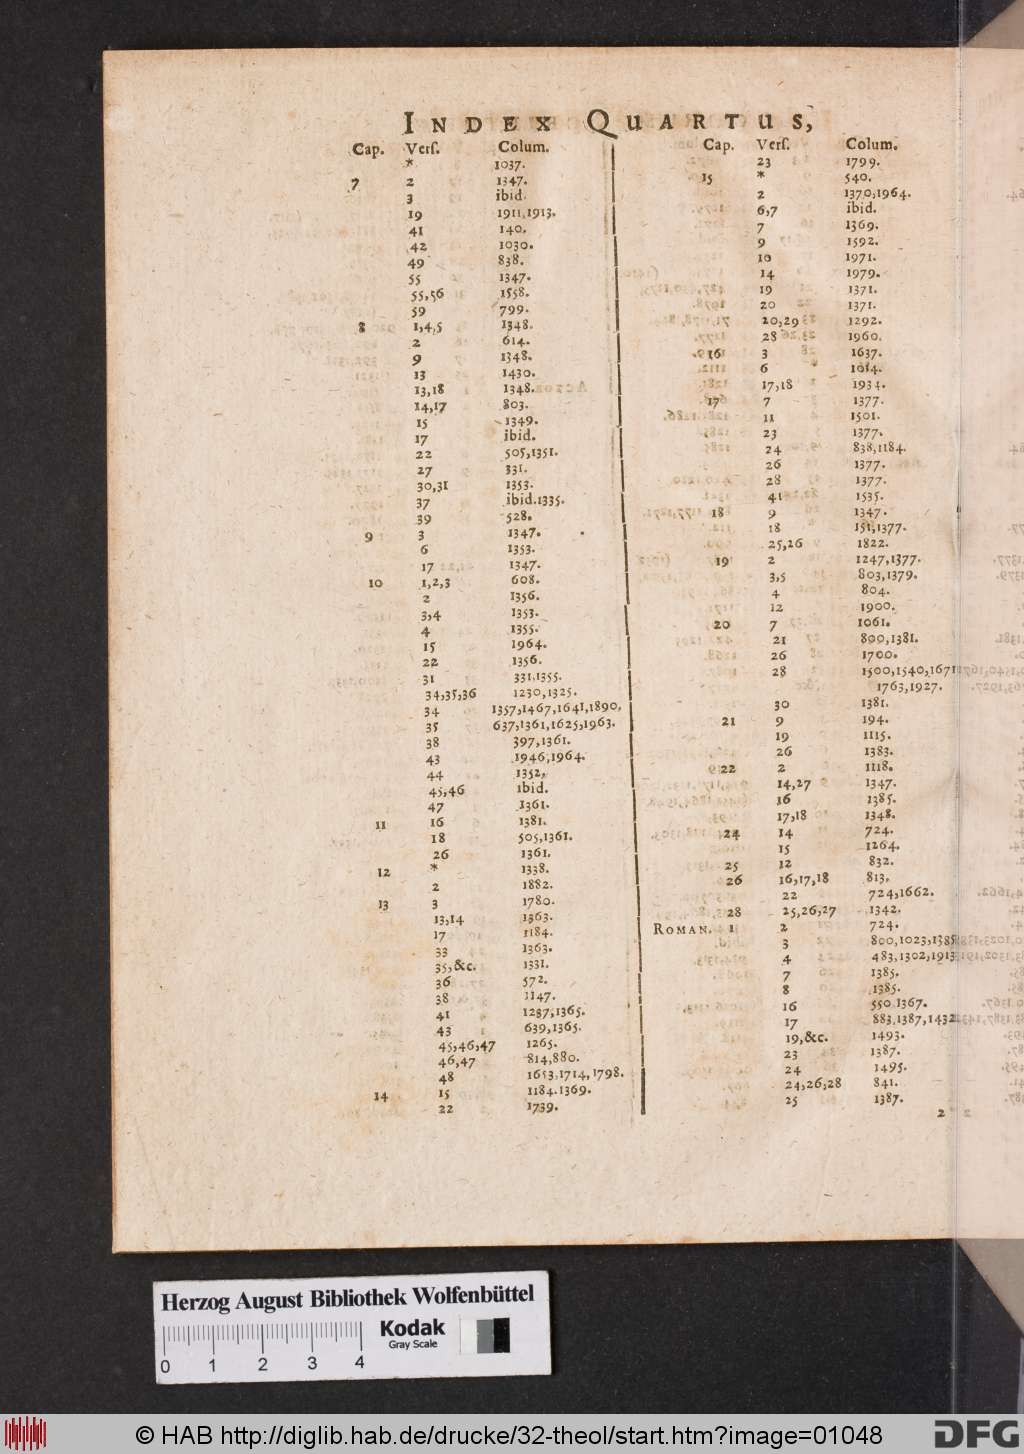 INDEX QUARTUS,
Cap. Vers. Colum.
* 1037.
7 2 1347.
3 ibid.
19 1911,1913.
41 140.
42 1030.
49 838.
55 1347.
55,56 1558.
59 799.
8 1,4,5 1348.
2 614.
9 1348.
13 1430.
13,18 1348.
14,17 803.
15 1349.
17 ibid.
22 505,1351.
27 331.
30,31 1353.
37 ibid.1335.
39 528.
9 3 1347.
6 1353.
17 1347.
10 1,2,3 608.
2 1356.
3,4 1353.
4 1355.
15 1964.
22 1356.
31 331,1355.
34,35,36 1230,1325.
34 1357,1467,1641,1890,
35 637,1361,1625,1963.
38 397,1361.
43 1946,1964.
44 1352,
45,46 ibid.
47 1361.
11 16 1381.
18 505,1361.
26 1361.
12 * 1338.
2 1882.
13 3 1780.
13,14 1363.
17 1184.
33 1363.
35,&c. 1331.
36 572.
38 1147.
41 1287,1365.
43 639,1365.
45,46,47 1265.
46,47 814,880.
48 1653,1714,1798.
14 15 1184.1369.
22 1739.
Cap. Vers. Colum.
23 1799.
15 * 540.
2 1370,1964.
6,7 ibid.
7 1369.
9 1592.
10 1971.
14 1979.
19 1371.
20 1371.
20,29 1292.
28 1960.
16 3 1637.
6 1014.
17,18 1934.
17 7 1377.
11 1501.
23 1377.
24 838,1184.
26 1377.
28 1377.
41 1535.
18 9 1347.
18 151,1377.
25,26 1822.
19 2 1247,1377.
3,5 803,1379.
4 804.
12 1900.
20 7 1061.
21 800,1381.
26 1700.
28 1500,1540,1671
1763,1927.
30 1381.
21 9 194.
19 1115.
26 1383.
22 2 1118.
14,27 1347.
16 1385.
17,18 1348.
24 14 724.
15 1264.
25 12 832.
26 16,17,18 813,
22 724,1662.
28 25,26,27 1342.
ROMAN. 1 2 724.
3 800,1023,1385
4 483,1302,1913
7 1385.
8 1385.
16 550,1367.
17 883,1387,1432
19,&c. 1493.
23 1387.
24 1495.
24,26,28 841.
25 1387.
2
Herzog August Bibliothek Wolfenbüttel
Kodak
Gray Scale
0 1 2 3 4
© HAB http://diglib.hab.de/drucke/32-theol/start.htm?image=01048
DFG